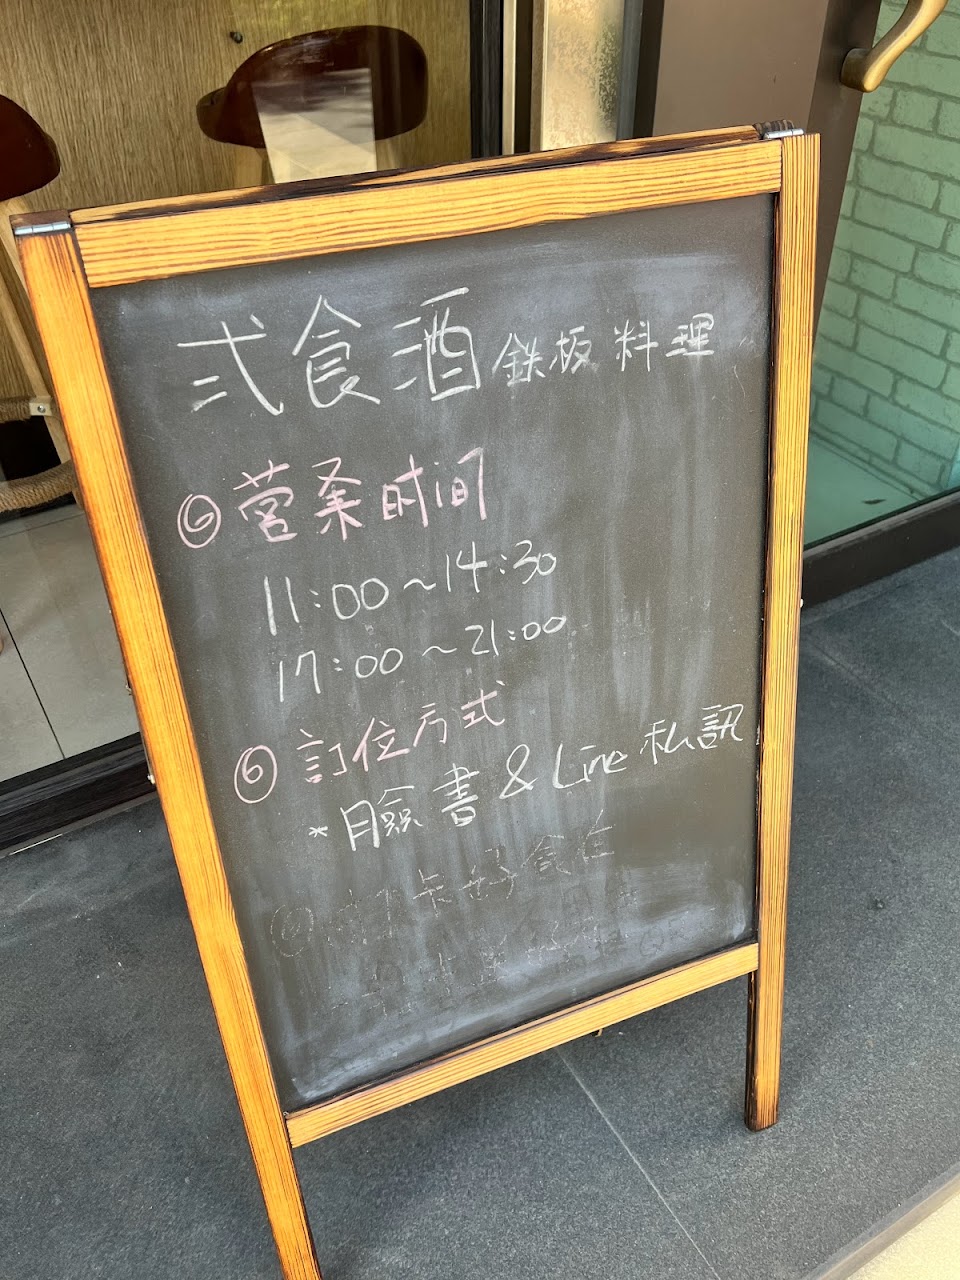 弍食酒 鉄板料理
営業时间
11:00～14:30
17:00～21:00
訂位方式
*臉書 & Line 私訊